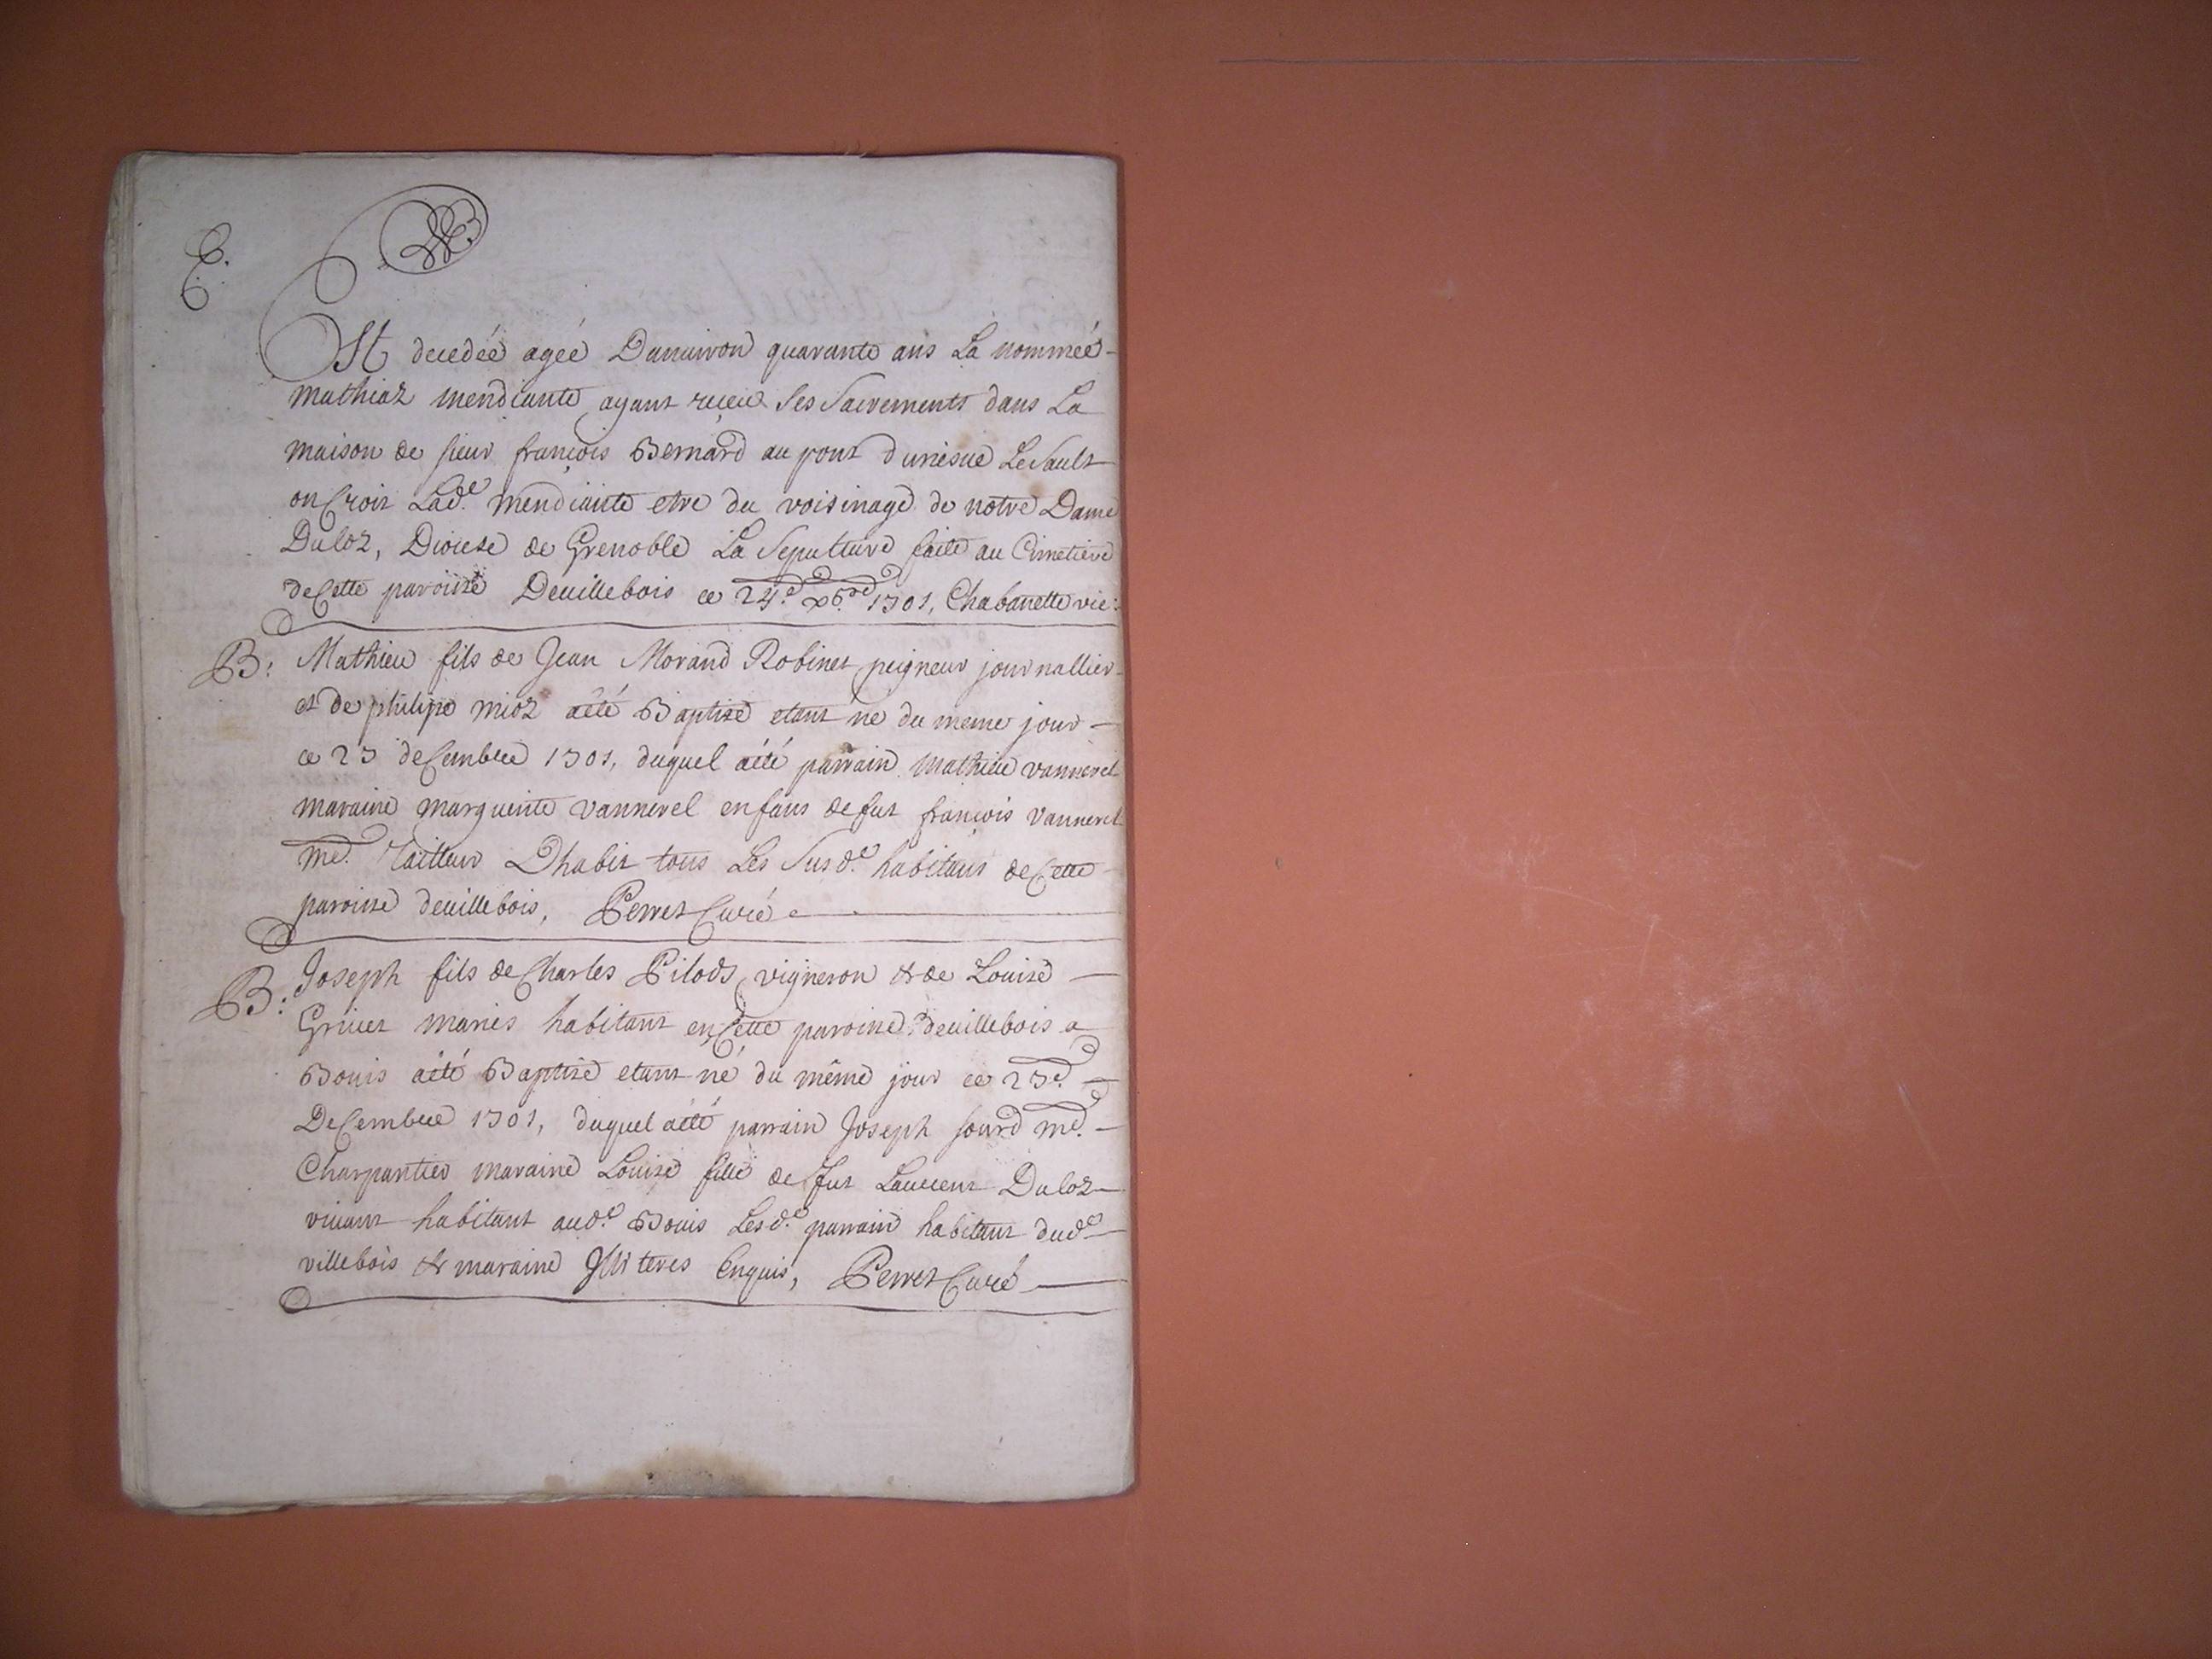 E.
Est decedée agée Danuiron quarante ans La nommée
mathiaz mendiante ayant receu Ses Sacrements dans La
maison de sieur françois Bernard au pont Le Sault
on Croit Lad.e mendiante etre du voisinage de notre Dame
Duloz, Diocese de Grenoble La Sepulture faite au Cimetiere
de Cette paroisse Deuillebois ce 24.e xb.re 1701, Chabanette vic:
B: Mathieu fils de Jean Morand Robinet peigneur journallier
et de philipe mioz aété Baptisé etant né du meme jour
ce 23 deCembre 1701, duquel aété parrain mathieu vannerel
maraine marguerite vannerel enfans de fut françois vannerel
me. Tailleur Dhabit tous Les Susd.e habitans de Cette
paroisse deuillebois, Perret Curé
B: Joseph fils de Charles Pilods vigneron & de Louise
Griuet mariés habitant en Cette paroisse deuillebois a
Bouis aété Baptisé etant né du même jour ce 23.e
DeCembre 1701, duquel aété parrain Joseph sourd me.
Charpantier maraine Louise fille de fut Laurent Duloz
viuant habitant aud.e Bouis Lesd.e parrain habitant dud.e
villebois & maraine Illiteres Enquis, Perret Curé